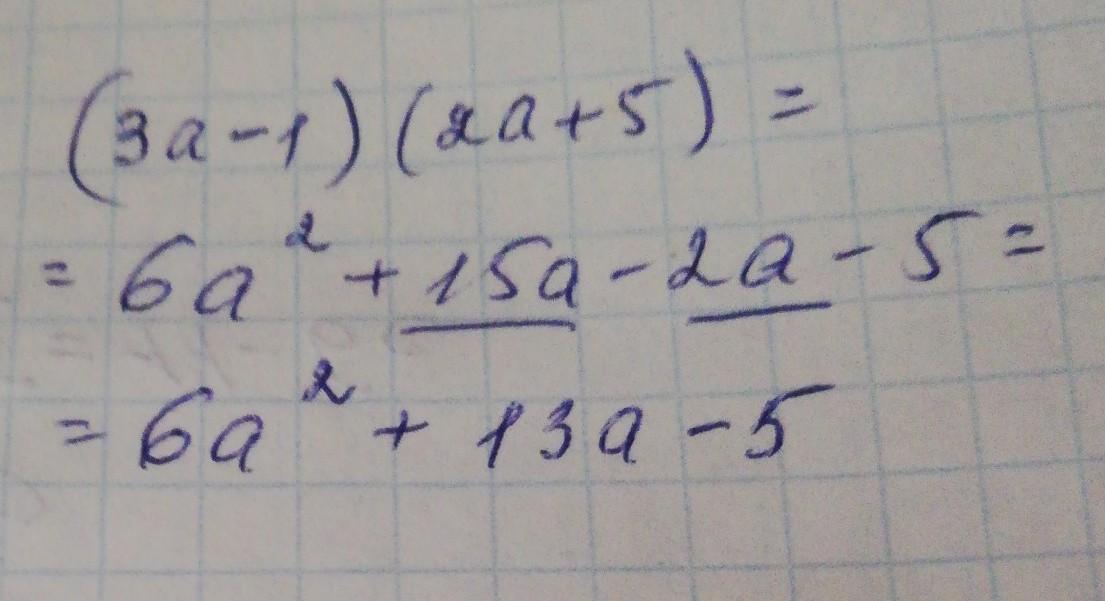 (3a-1)(2a+5)=
=6a²+15a-2a-5=
=6a²+13a-5